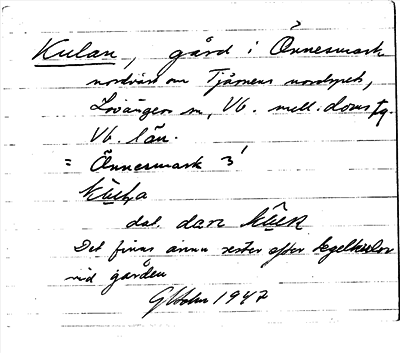 Kulan, gård i Ånnesmark
nordväst om Tjärnens nordspets,
Lövångers sn, Vb. mell. doms fg.
Vb. län.
= Ånnesmark 3
dat. dan
Det finns ännu rester efter kegelkulor
vid gården
1947